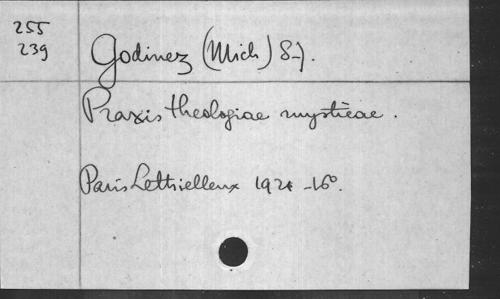 255
239
Godinez (Mich) S.J.
Praxis theologiae mysticae.
Paris Lethielleux 192 -16°.